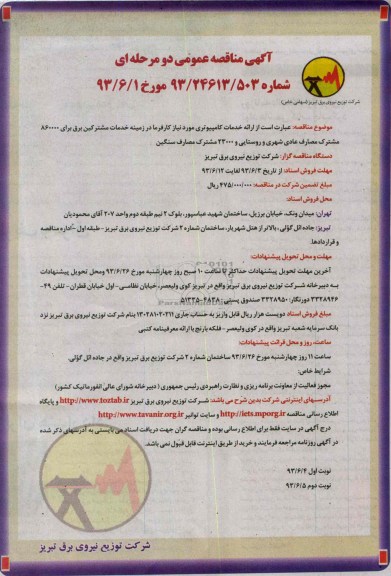 آگهی مناقصه عمومی دو مرحله ای
شماره ۹۳/۲۴۶۱۳/۵۰۳ مورخ ۹۳/۶/۱
شرکت توزیع نیروی برق تبریز (سهامی خاص)
موضوع مناقصه: عبارت است از ارائه خدمات کامپیوتری مورد نیاز کارفرما در زمینه خدمات مشترکین برق برای ۸۶۰۰۰۰
مشترک مصارف عادی شهری و روستایی و ۲۳۰۰۰ مشترک مصارف سنگین
دستگاه مناقصه گزار: شرکت توزیع نیروی برق تبریز
مهلت فروش اسناد: از تاریخ ۹۳/۶/۳ لغایت ۹۳/۶/۱۲
مبلغ تضمین شرکت در مناقصه: ۴۷۵/۰۰۰/۰۰۰ ریال
محل فروش اسناد:
تهران: میدان ونک، خیابان برزیل، ساختمان شهید عباسپور، بلوک ۲ نیم طبقه دوم واحد ۲۰۷ آقای محمودیان
تبریز: جاده ائل گؤلی، بالاتر از هتل شهریار، ساختمان شماره ۲ شرکت توزیع نیروی برق تبریز - طبقه اول - اداره مناقصه
و قراردادها.
مهلت و محل تحویل پیشنهادات:
آخرین مهلت تحویل پیشنهادات حداکثر تا ساعت ۱۰ صبح روز چهارشنبه مورخ ۹۳/۶/۲۶ ومحل تحویل پیشنهادات
به دبیرخانه شرکت توزیع نیروی برق تبریز واقع در تبریز کوی ولیعصر، خیابان نظامی - اول خیابان قطران - تلفن ۴۹-
۳۳۲۸۹۴۶ دورنگار: ۳۳۲۸۹۵۰ صندوق پستی: ۴۸۳۸-۵۱۳۳۵
مبلغ فروش اسناد دویست هزار ریال قابل واریز به حساب جاری ۱۳۰۲۸۱۰۲۰۳۱۱ بنام شرکت توزیع نیروی برق تبریز نزد
بانک سرمایه شعبه تبریز واقع در کوی ولیعصر - فلکه بارنج با ارائه معرفینامه کتبی
ساعت، روز و محل قرائت پیشنهادات:
ساعت ۱۱ روز چهارشنبه مورخ ۹۳/۶/۲۶ ساختمان شماره ۲ شرکت توزیع برق تبریز واقع در جاده ائل گؤلی.
شرایط خاص:
مجوز فعالیت از معاونت برنامه ریزی و نظارت راهبردی رئیس جمهوری ( دبیرخانه شورای عالی انفورماتیک کشور)
آدرسهای اینترنتی شرکت بدین شرح می باشد: شرکت توزیع نیروی برق تبریز http://www.toztab.ir و پایگاه
اطلاع رسانی مناقصه http://iets.mporg.ir و سایت توانیر http://www.tavanir.org.ir
درج آگهی در سایت فقط برای اطلاع رسانی بوده و مناقصه گران جهت دریافت اسناد می بایستی به آدرسهای ذکر شده
در آگهی روزنامه مراجعه فرمایند و خرید از طریق اینترنت قابل قبول نمی باشد.
نوبت اول ۹۳/۶/۴
نوبت دوم ۹۳/۶/۵
شرکت توزیع نیروی برق تبریز